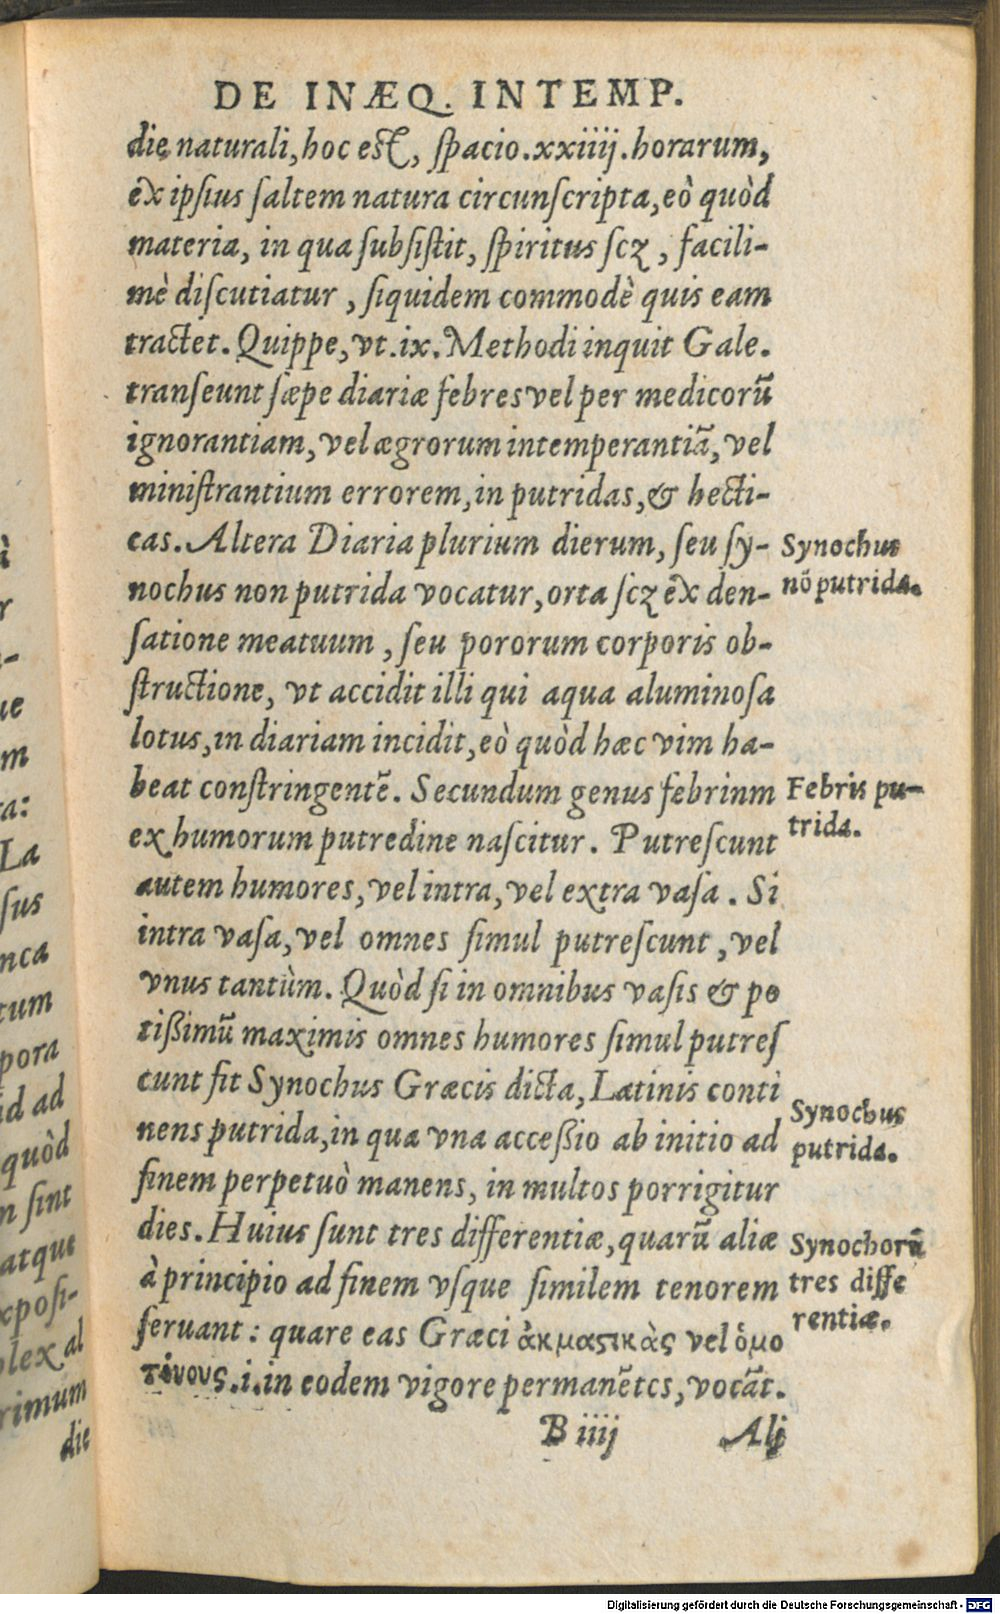 DE INÆQ. INTEMP.
die naturali, hoc est, spacio .xxiiij. horarum,
ex ipsius saltem natura circunscripta, eò quòd
materia, in qua subsistit, spiritus scȥ, facili-
mè discutiatur, siquidem commodè quis eam
tractet. Quippe, vt .ix. Methodi inquit Gale.
transeunt sæpe diariæ febres vel per medicorū
ignorantiam, vel ægrorum intemperantiā, vel
ministrantium errorem, in putridas, & hecti-
cas. Altera Diaria plurium dierum, seu sy-
nochus non putrida vocatur, orta scȥ ex den-
satione meatuum, seu pororum corporis ob-
structione, vt accidit illi qui aqua aluminosa
lotus, in diariam incidit, eò quòd hæc vim ha-
beat constringentē. Secundum genus febrinm
ex humorum putredine nascitur. Putrescunt
autem humores, vel intra, vel extra vasa. Si
intra vasa, vel omnes simul putrescunt, vel
vnus tantùm. Quòd si in omnibus vasis & po
tißimū maximis omnes humores simul putres
cunt fit Synochus Græcis dicta, Latinis conti
nens putrida, in qua vna acceßio ab initio ad
finem perpetuò manens, in multos porrigitur
dies. Huius sunt tres differentiæ, quarū aliæ
à principio ad finem vsque similem tenorem
seruant: quare eas Græci ἀκμαςικὰς vel ὁμο
τόνους .i. in eodem vigore permanētes, vocāt.
B iiij Alj
Synochus
nō putrida.
Febris pu-
trida.
Synochus
putrida.
Synochorū
tres diffe
rentiæ.
ì
r
-
ue
m
ra:
La
sus
nca
tum
pora
id ad
quòd
n sint
atque
xposi-
plex al
rimum
die
Digitalisierung gefördert durch die Deutsche Forschungsgemeinschaft - DFG